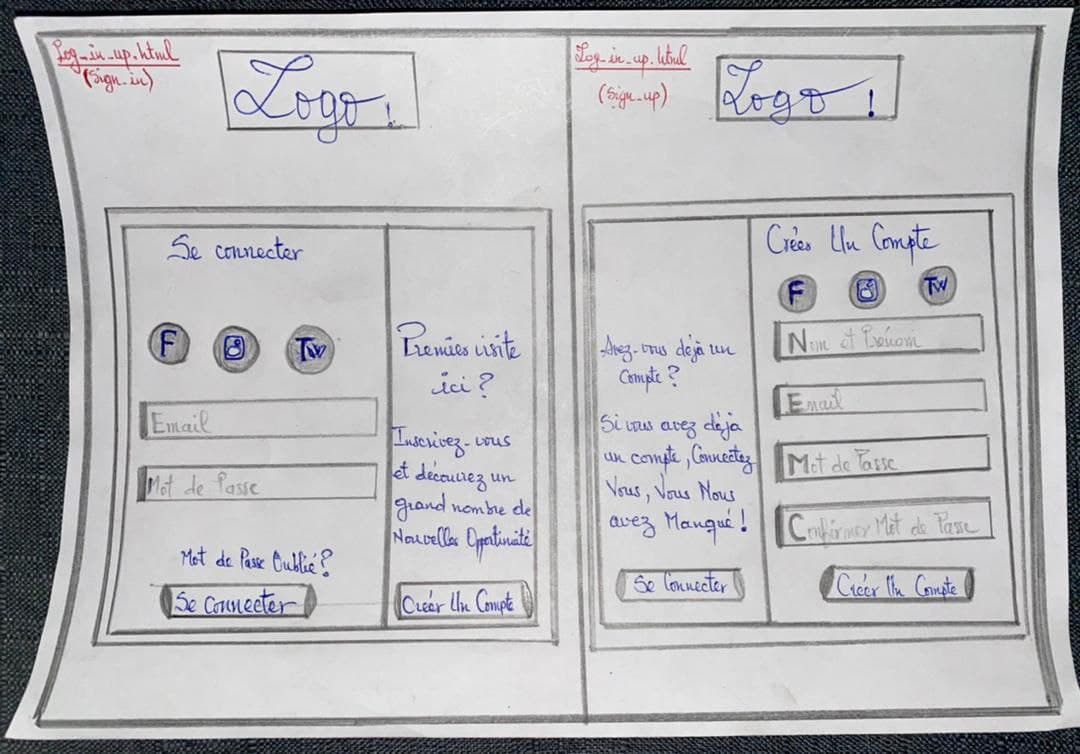 Log_in_up.html
(Sign_in)
Logo !
Se connecter
F
Tw
Email
Mot de Passe
Mot de Passe Oublié?
Se Connecter
Premier visite
ici ?
Inscrivez-vous
et découvrez un
grand nombre de
Nouvelles Opportinuité
Créér Un Compte
Log_in_up.html
(Sign_up)
Logo !
Avez-vous déjà un
Compte ?
Si vous avez déja
un compte, Connectez
Vous, Vous Nous
avez Manqué !
Se Connecter
Créer Un Compte
F
Tw
Nom et Prénom
Email
Mot de Passe
Confirmer Mot de Passe
Créér Un Compte